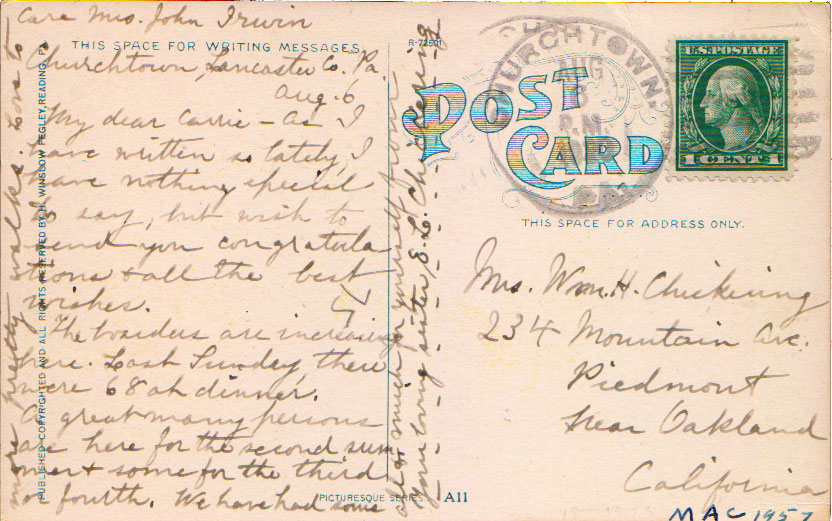 Care Mrs. John Irwin
THIS SPACE FOR WRITING MESSAGES.
Churchtown, Lancaster Co. Pa.
Aug. 6
My dear Carrie - As I
have written so lately, I
have nothing special
to say, but wish to
send you congratula
tions & all the best
wishes.
The boarders are increasing
here. Last Sunday, there
were 68 at dinner.
A great many persons
are here for the second sum
mer & some for the third
or fourth. We have had some
more pretty walks. Love to
all & much for yourself from
your loving sister, E. L. Chickering
PUBLISHED, COPYRIGHTED AND ALL RIGHTS RESERVED BY H. WINSLOW FEGLEY, READING, PA.
R-72601
POST
CARD
CHURCHTOWN,
AUG
6
P.M.
PA.
U.S. POSTAGE
1 CENT 1
THIS SPACE FOR ADDRESS ONLY.
Mrs. Wm. H. Chickering
234 Mountain Ave.
Piedmont
Near Oakland
California
PICTURESQUE SERIES
A11
MAC 1957